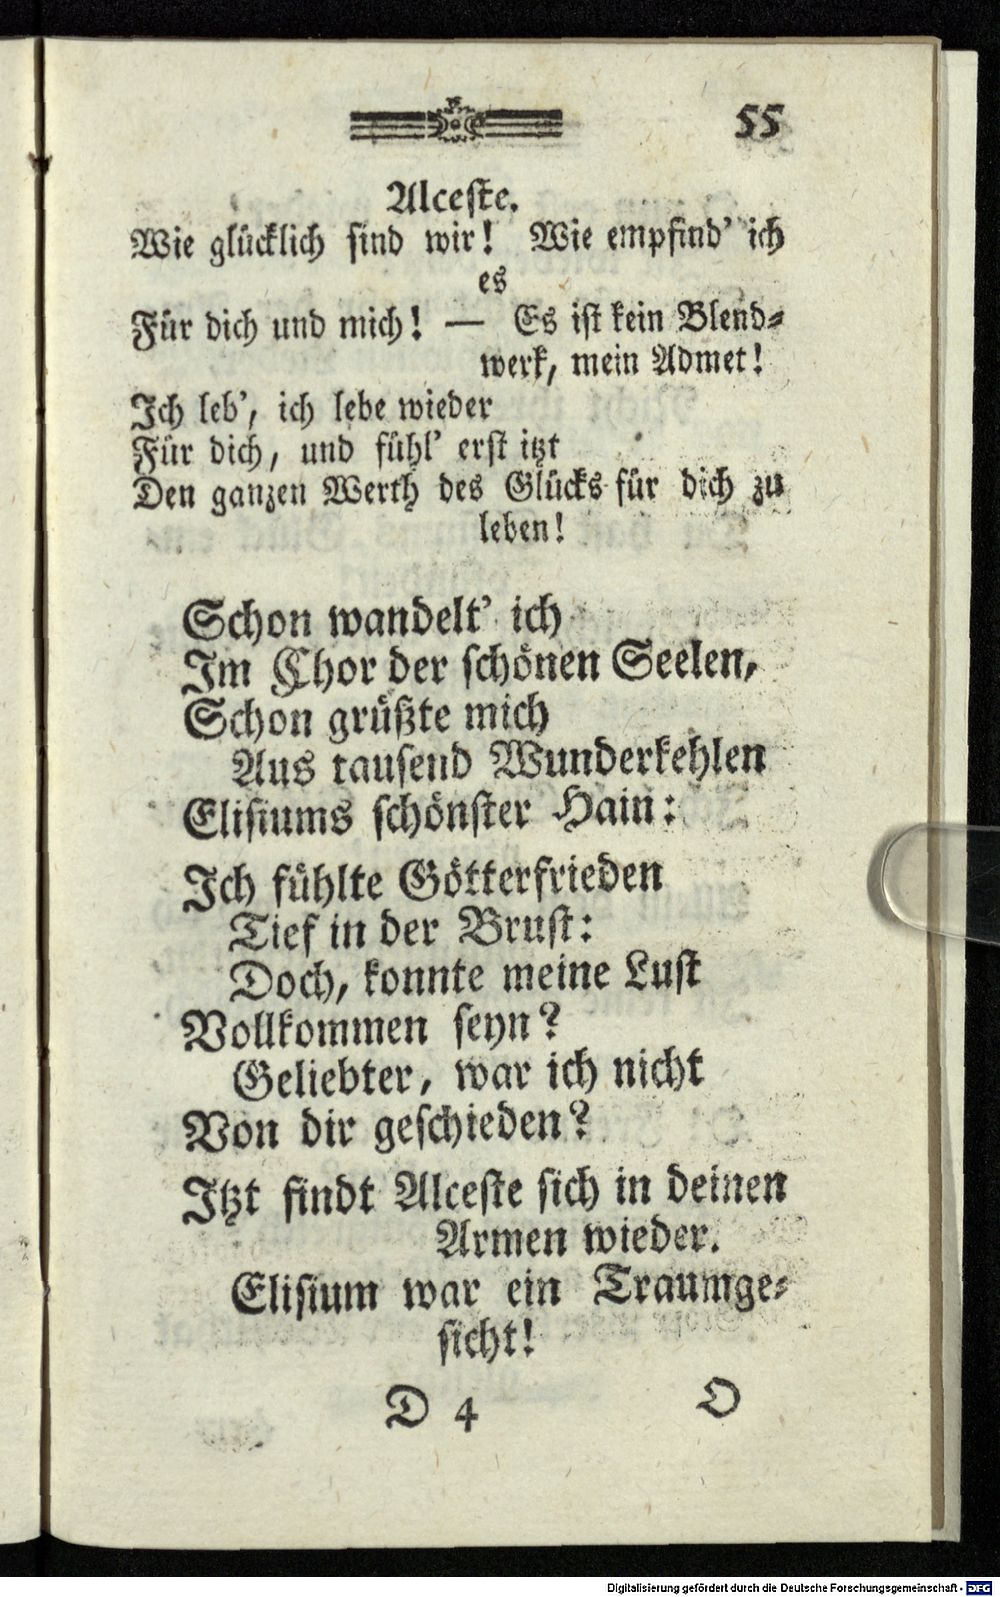 55
Alceste.
Wie glücklich sind wir! Wie empfind' ich
es
Für dich und mich! — Es ist kein Blend-
werk, mein Admet!
Ich leb', ich lebe wieder
Für dich, und fühl' erst itzt
Den ganzen Werth des Glücks für dich zu
leben!
Schon wandelt' ich
Im Chor der schönen Seelen,
Schon grüßte mich
Aus tausend Wunderkehlen
Elisiums schönster Hain:
Ich fühlte Götterfrieden
Tief in der Brust:
Doch, konnte meine Lust
Vollkommen seyn?
Geliebter, war ich nicht
Von dir geschieden?
Itzt findt Alceste sich in deinen
Armen wieder.
Elisium war ein Traumge-
sicht!
D 4 O
Digitalisierung gefördert durch die Deutsche Forschungsgemeinschaft - DFG